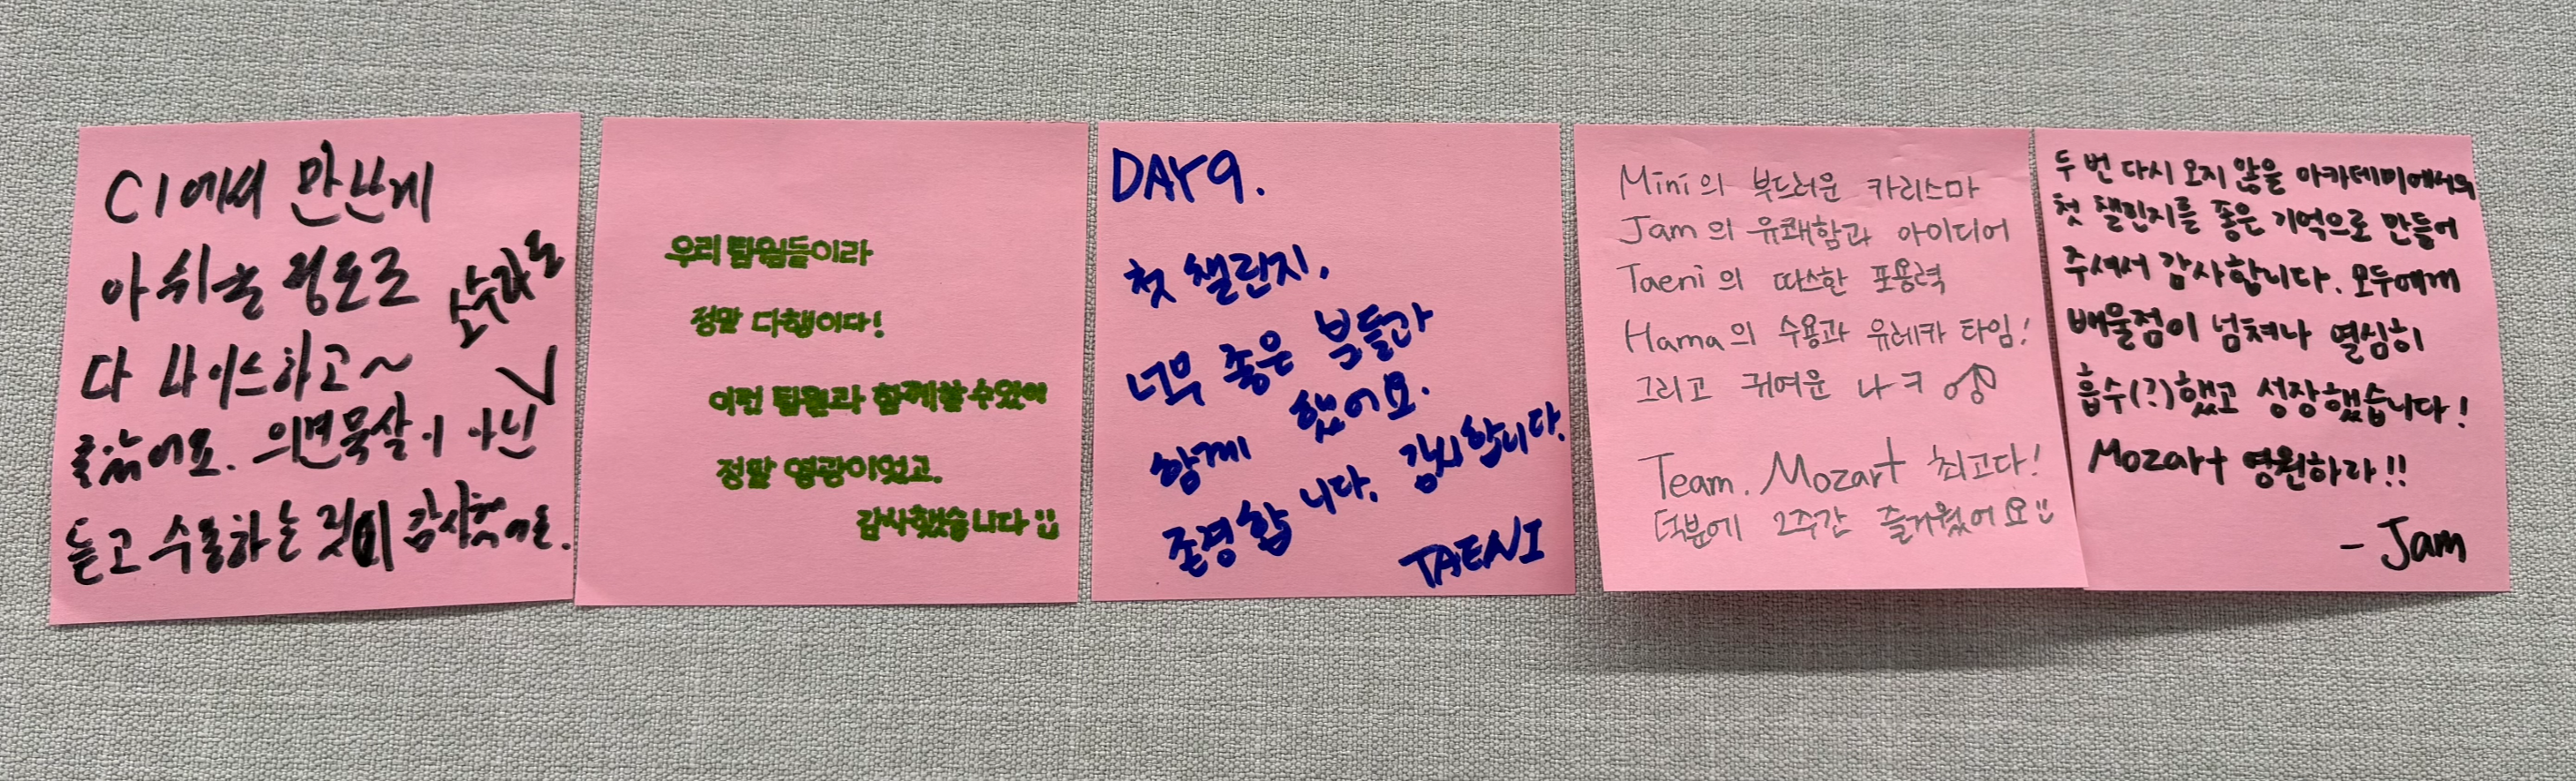 C1에서 만난게
아쉬울 정도로
다 나이스하고~
좋았어요. 의견묵살이 아닌
듣고 수용하는 것이 감사했어요.
우리 팀원들이라
정말 다행이다!
이런 팀원과 함께할 수 있어
정말 영광이었고.
감사했습니다
DAY9.
첫 챌린지,
너무 좋은 분들과
함께 했어요.
존경합니다. 감사합니다.
TAENI
Mini의 부드러운 카리스마
Jam의 유쾌함과 아이디어
Taeni의 따스한 포용력
Hama의 수용과 유레카 타임!
그리고 귀여운 나ㅋ
Team. Mozart 최고다!
덕분에 2주간 즐거웠어요
두 번 다시 오지 않을 아카데미에서의
첫 챌린지를 좋은 기억으로 만들어
주셔서 감사합니다. 모두에게
배울점이 넘쳐나 열심히
흡수(?)했고 성장했습니다!
Mozart 영원하라!!
- Jam